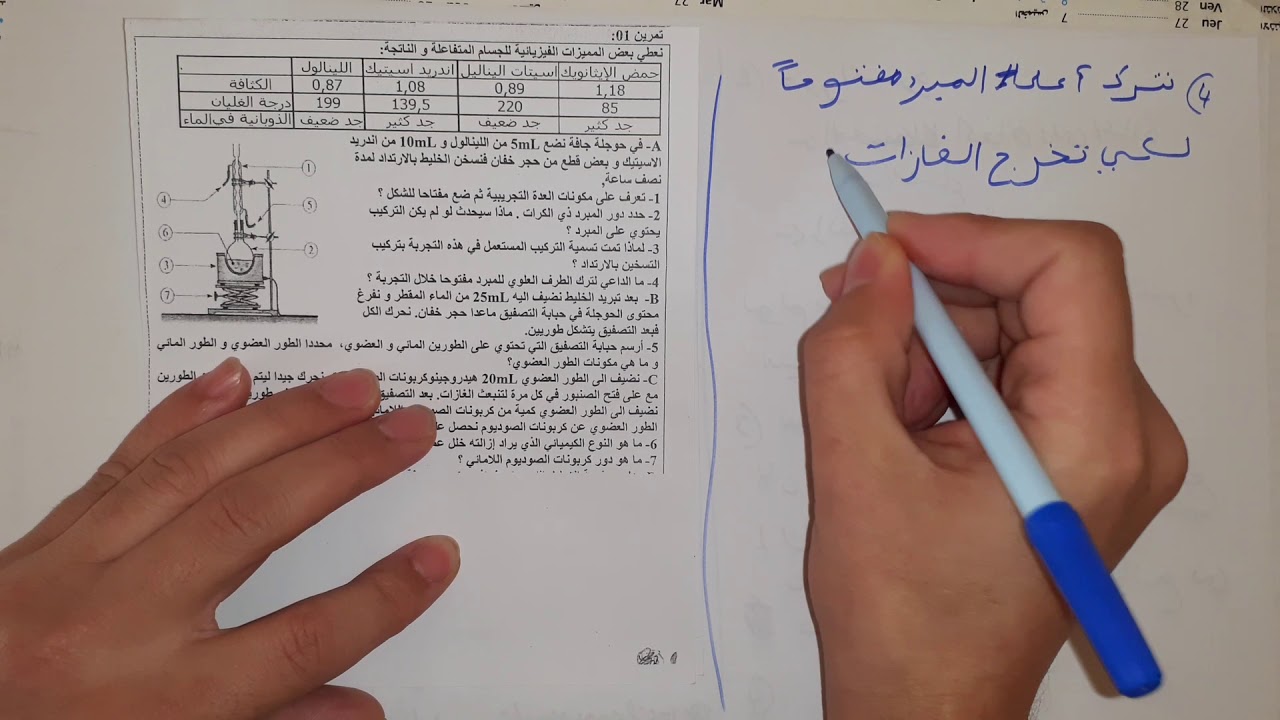 Mar 27
7 الخميس
Jeu 27
Ven 28
تمرين 01:
نعطي بعض المميزات الفيزيائية للجسام المتفاعلة و الناتجة:
حمض الإيثانويك اسيتات اليناليل اندريد اسيتيك اللينالول
1,18 0,89 1,08 0,87 الكثافة
85 220 139,5 199 درجة الغليان
جد كثير جد ضعيف جد كثير جد ضعيف الذوبانية في الماء
A- في حوجلة جافة نضع 5mL من اللينالول و 10mL من اندريد
الاسيتيك و بعض قطع من حجر خفان فنسخن الخليط بالارتداد لمدة
نصف ساعة,
1- تعرف على مكونات العدة التجريبية ثم ضع مفتاحا للشكل ؟
2- حدد دور المبرد ذي الكرات . ماذا سيحدث لو لم يكن التركيب
يحتوي على المبرد ؟
3- لماذا تمت تسمية التركيب المستعمل في هذه التجربة بتركيب
التسخين بالارتداد ؟
4- ما الداعي لترك الطرف العلوي للمبرد مفتوحا خلال التجربة ؟
B- بعد تبريد الخليط نضيف اليه 25mL من الماء المقطر و نفرغ
محتوى الحوجلة في حبابة التصفيق ماعدا حجر خفان. نحرك الكل
فبعد التصفيق يتشكل طوريين.
5- أرسم حبابة التصفيق التي تحتوي على الطورين الماني و العضوي، محددا الطور العضوي و الطور الماني
و ما هي مكونات الطور العضوي؟
C- نضيف الى الطور العضوي 20mL هيدروجينوكربونات نحرك جيدا ليتم الطورين
مع على فتح الصنبور في كل مرة لتنبعث الغازات. بعد التصفيق
نضيف الى الطور العضوي كمية من كربونات
الطور العضوي عن كربونات الصوديوم نحصل
6- ما هو النوع الكيميائي الذي يراد إزالته خلل
7- ما هو دور كربونات الصوديوم اللاماني ؟
1
4
5
6
2
3
7
4) نترك أعلى المبرد مفتوحاً
لكي تخرج الغازات